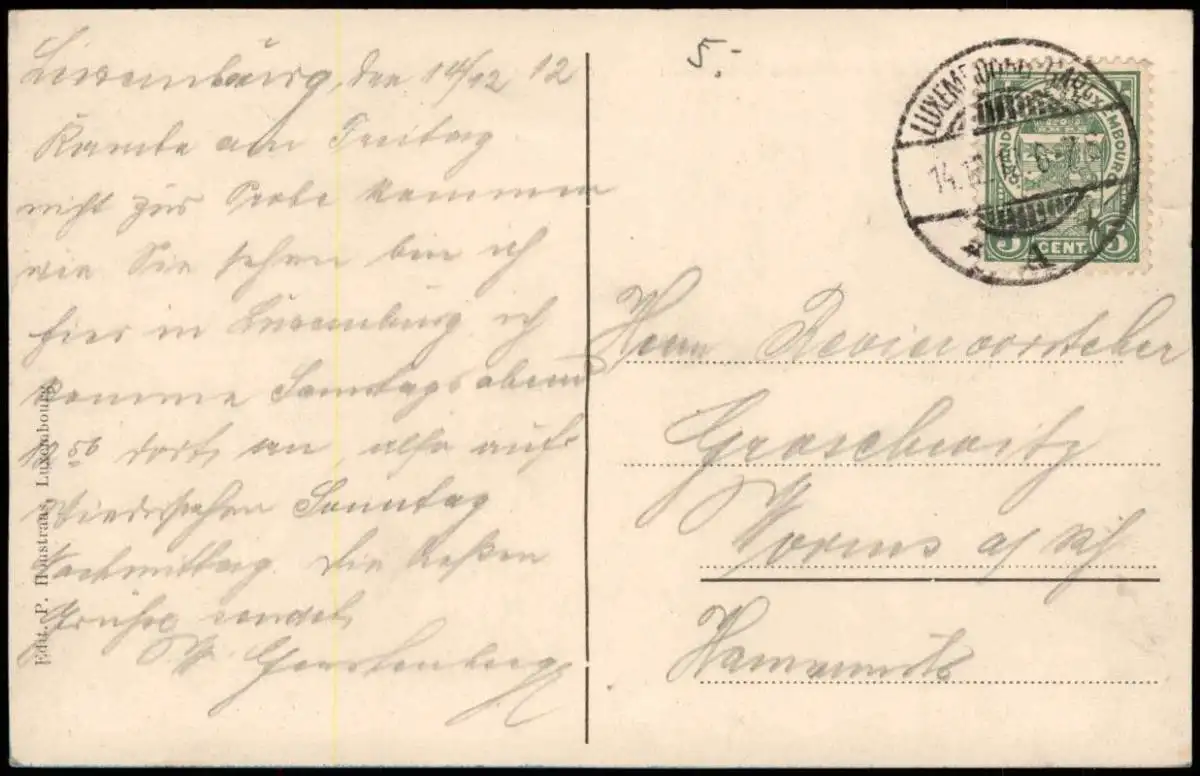 Luxemburg, den 14/12 12
Kamte am Freitag
nicht zur Probe kommen
wie Sie sehen bin ich
hier in Luxemburg ich
komme Sonntags abend
12 56 dort an, also auf
Wiedersehen Sonntag
Nachmittag. Die besten
Grüße sendet,
W. Gerstenberg
Edit. P. Houstraas, Luxembourg.
5.-
LUXEMBOURG GARE
14.12. 6-7
A
LUXEMBOURG
5 CENT 5
Herrn Reviervorsteher
Groschwitz
Worms a/Rh